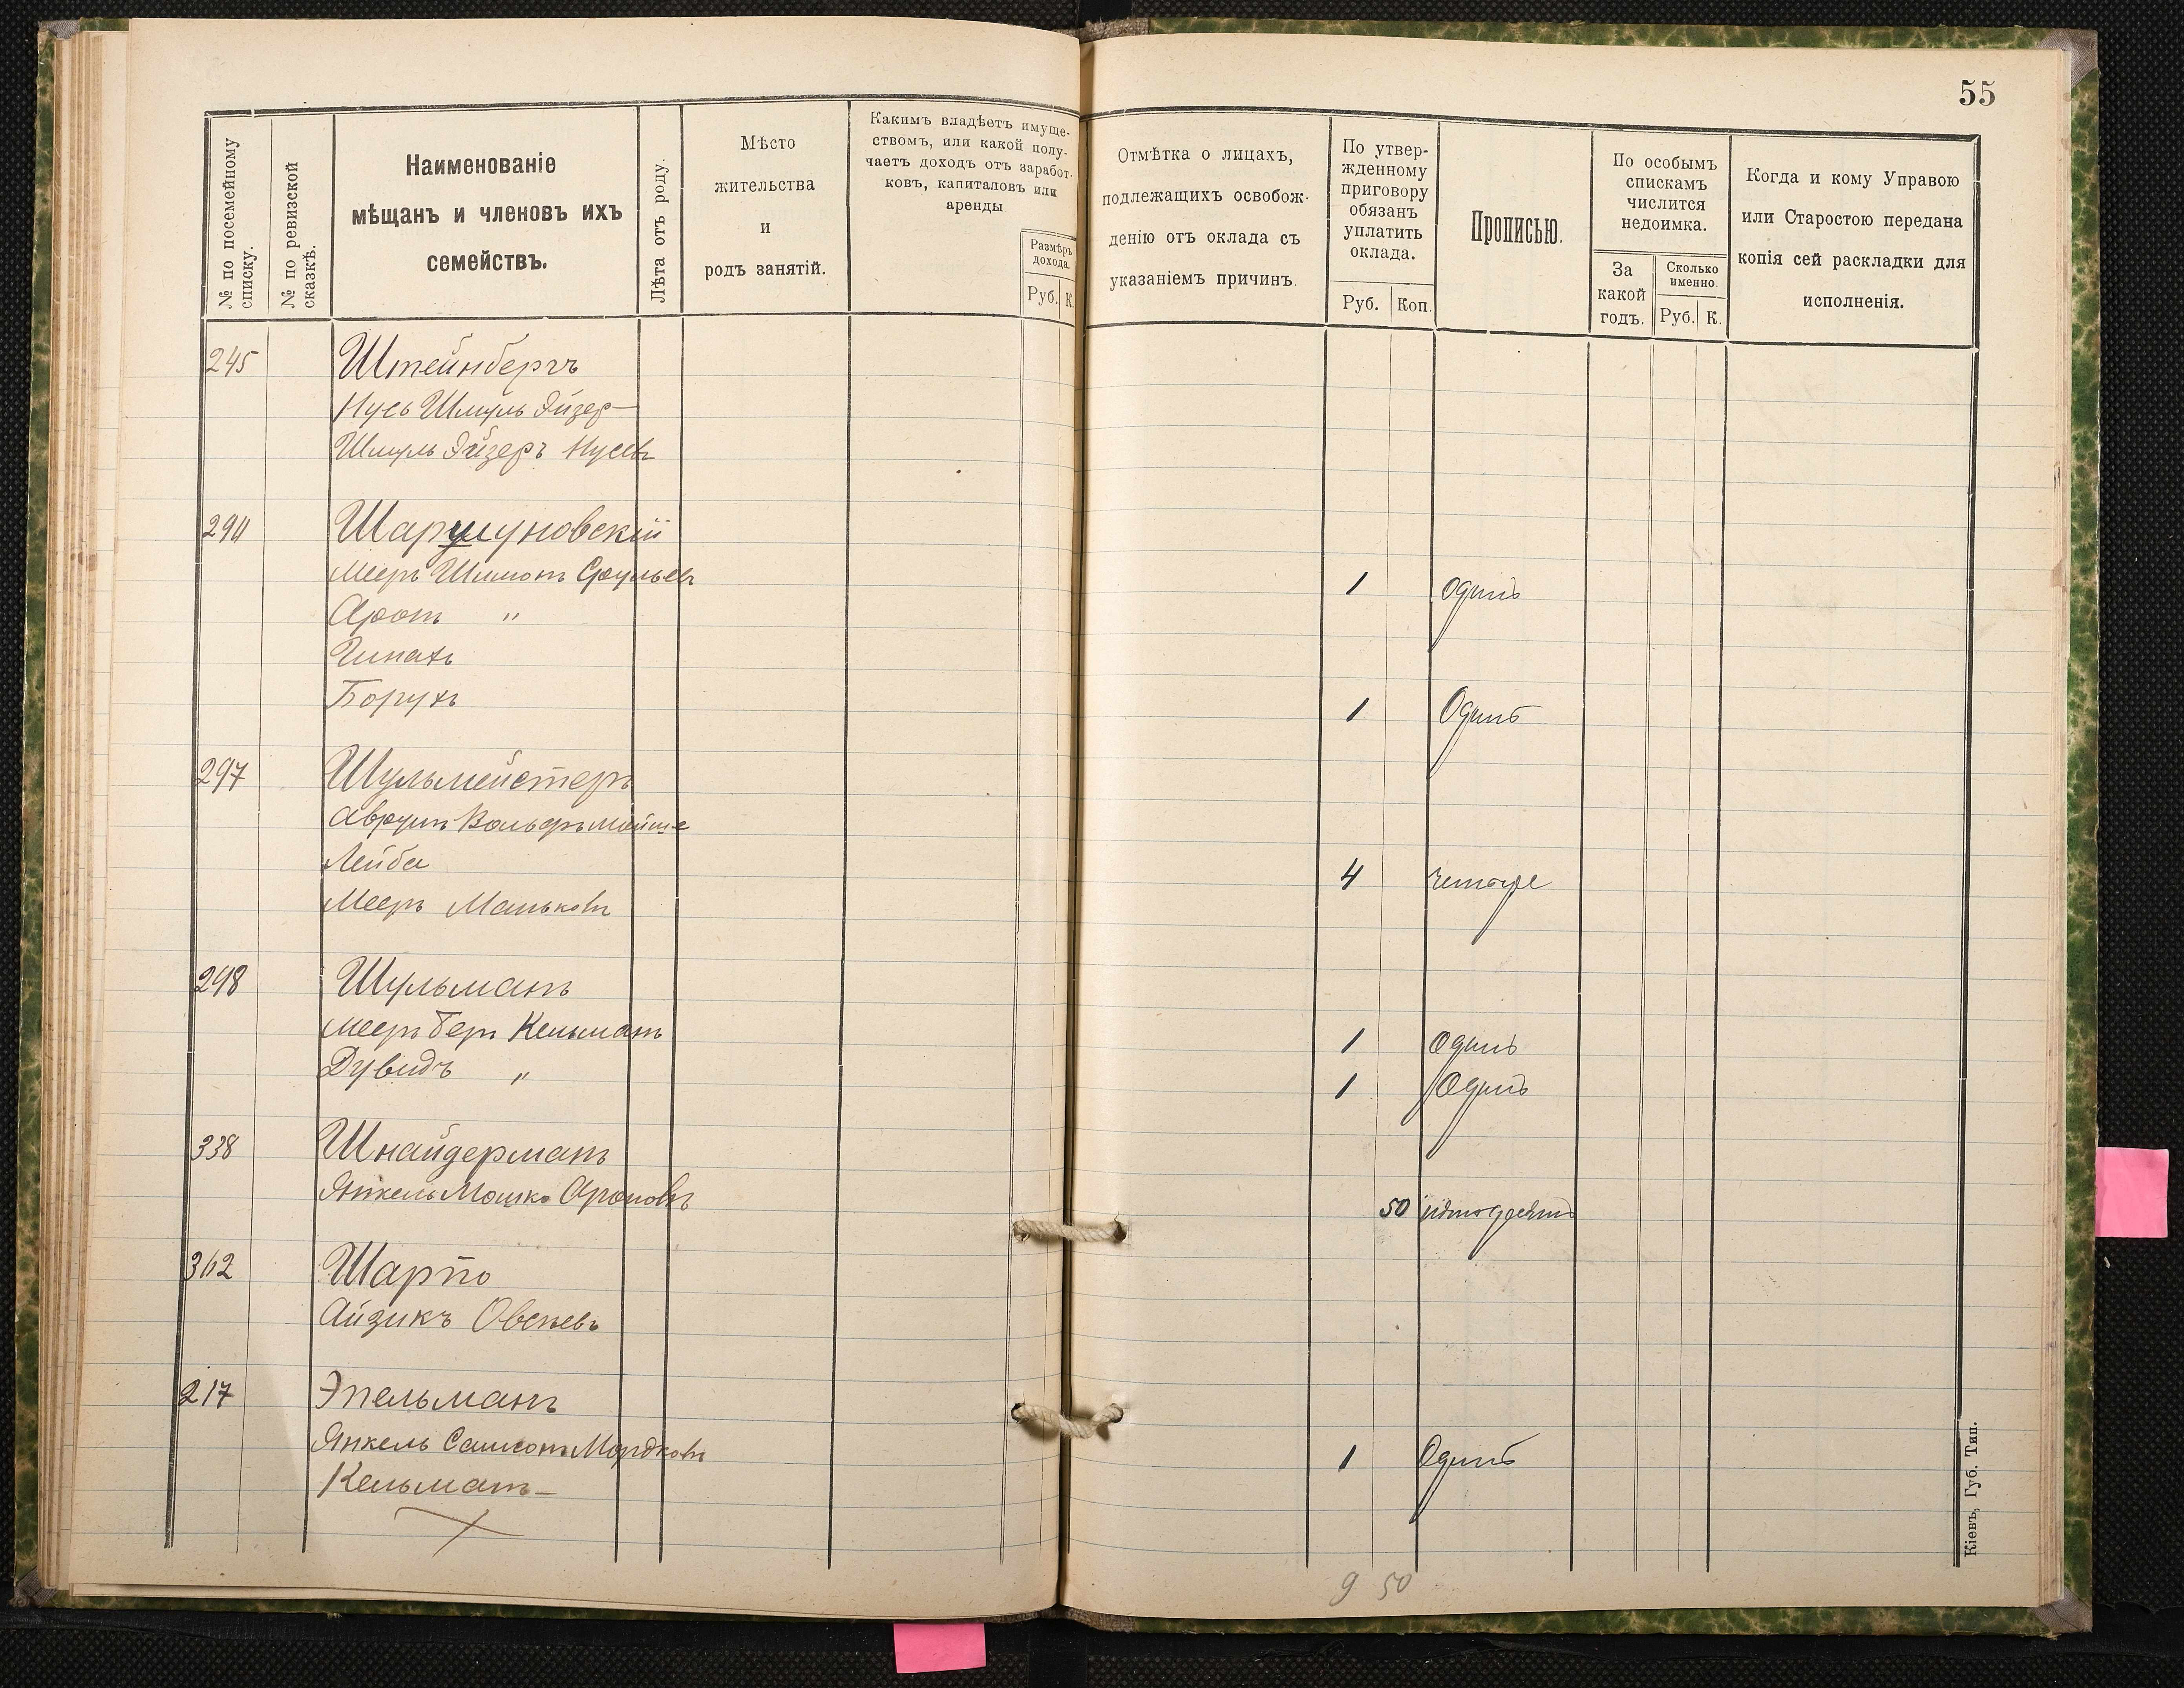 55
№ по посемейному списку.
№ по ревизской сказкѣ.
Наименованіе
мѣщанъ и членовъ ихъ
семействъ.
Лѣта отъ роду.
Мѣсто
жительства
и
родъ занятій.
Какимъ владѣетъ имуще-
ствомъ, или какой полу-
чаетъ доходъ отъ заработ-
ковъ, капиталовъ или
аренды
Размѣръ
дохода.
Руб. К.
Отмѣтка о лицахъ,
подлежащихъ освобож-
денію отъ оклада съ
указаніемъ причинъ.
По утвер-
жденному
приговору
обязанъ
уплатить
оклада.
Руб. Коп.
Прописью.
По особымъ
спискамъ
числится
недоимка.
За
какой
годъ.
Сколько
именно.
Руб. К.
Когда и кому Управою
или Старостою передана
копія сей раскладки для
исполненія.
245 Штейнбергъ
Нусь Шмуль Эйзер-
Шмуль Эйзеръ Нусевъ
294
Мееръ Шимонъ Срульевъ 1 Одинъ
Аронъ "
Пинахъ
Борухъ 1 Одинъ
297 Шульмейстеръ
Аврумъ Вольфъ Мойше
Лейба 4 четыре
Мееръ Маньковъ
298 Шульманъ
Мееръ Беръ Кельманъ 1 Одинъ
Дувидъ " 1 Одинъ
338 Шнайдерманъ
Янкель Мошко Ароновъ 50 пятьдесятъ
362 Шарго
Айзикъ Овсѣевъ
217 Эпельманъ
Янкель Самсонъ Мордковъ 1 Одинъ
Кельманъ-
9 50
Кіевъ, Губ. Тип.